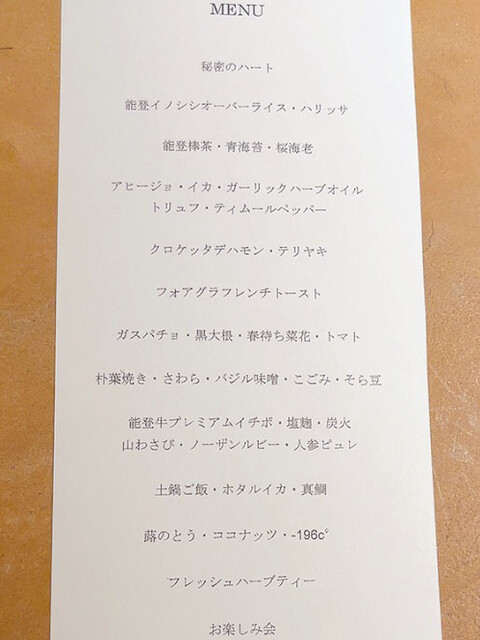 MENU
秘密のハート
能登イノシシオーバーライス・ハリッサ
能登棒茶・青海苔・桜海老
アヒージョ・イカ・ガーリックハーブオイル
トリュフ・ティムールペッパー
クロケッタデハモン・テリヤキ
フォアグラフレンチトースト
ガスパチョ・黒大根・春待ち菜花・トマト
朴葉焼き・さわら・バジル味噌・こごみ・そら豆
能登牛プレミアムイチボ・塩麹・炭火
山わさび・ノーザンルビー・人参ピュレ
土鍋ご飯・ホタルイカ・真鯛
蕗のとう・ココナッツ・-196c°
フレッシュハーブティー
お楽しみ会